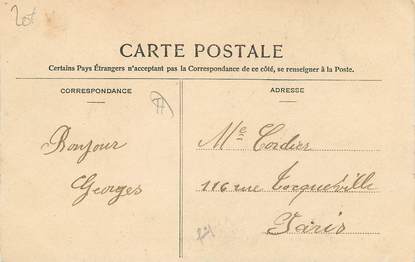 20f
CARTE POSTALE
Certains Pays Étrangers n'acceptant pas la Correspondance de ce côté, se renseigner à la Poste.
CORRESPONDANCE
ADRESSE
Bonjour
Georges
Mle Cordier
116 rue Tocqueville
Paris